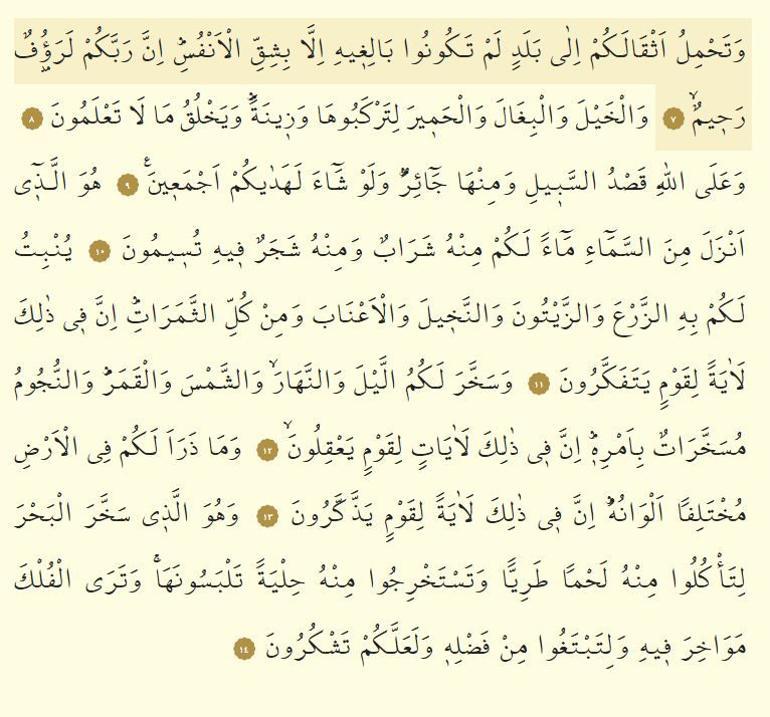 وَتَحْمِلُ اَثْقَالَكُمْ اِلٰى بَلَدٍ لَمْ تَكُونُوا بَالِغ۪يهِ اِلَّا بِشِقِّ الْاَنْفُسِۜ اِنَّ رَبَّكُمْ لَرَؤُ۫فٌ
رَح۪يمٌۙ ﴿٧﴾ وَالْخَيْلَ وَالْبِغَالَ وَالْحَم۪يرَ لِتَرْكَبُوهَا وَز۪ينَةًۜ وَيَخْلُقُ مَا لَا تَعْلَمُونَ ﴿٨﴾
وَعَلَى اللّٰهِ قَصْدُ السَّب۪يلِ وَمِنْهَا جَٓائِرٌۜ وَلَوْ شَٓاءَ لَهَدٰيكُمْ اَجْمَع۪ينَ۟ ﴿٩﴾ هُوَ الَّذ۪ٓى
اَنْزَلَ مِنَ السَّمَٓاءِ مَٓاءً لَكُمْ مِنْهُ شَرَابٌ وَمِنْهُ شَجَرٌ ف۪يهِ تُس۪يمُونَ ﴿١٠﴾ يُنْبِتُ
لَكُمْ بِهِ الزَّرْعَ وَالزَّيْتُونَ وَالنَّخ۪يلَ وَالْاَعْنَابَ وَمِنْ كُلِّ الثَّمَرَاتِۜ اِنَّ ف۪ى ذٰلِكَ
لَاٰيَةً لِقَوْمٍ يَتَفَكَّرُونَ ﴿١١﴾ وَسَخَّرَ لَكُمُ الَّيْلَ وَالنَّهَارَۙ وَالشَّمْسَ وَالْقَمَرَۜ وَالنُّجُومُ
مُسَخَّرَاتٌ بِاَمْرِه۪ۜ اِنَّ ف۪ى ذٰلِكَ لَاٰيَاتٍ لِقَوْمٍ يَعْقِلُونَۙ ﴿١٢﴾ وَمَا ذَرَاَ لَكُمْ فِى الْاَرْضِ
مُخْتَلِفًا اَلْوَانُهُۜ اِنَّ ف۪ى ذٰلِكَ لَاٰيَةً لِقَوْمٍ يَذَّكَّرُونَ ﴿١٣﴾ وَهُوَ الَّذ۪ى سَخَّرَ الْبَحْرَ
لِتَأْكُلُوا مِنْهُ لَحْمًا طَرِيًّا وَتَسْتَخْرِجُوا مِنْهُ حِلْيَةً تَلْبَسُونَهَاۚ وَتَرَى الْفُلْكَ
مَوَاخِرَ ف۪يهِ وَلِتَبْتَغُوا مِنْ فَضْلِه۪ وَلَعَلَّكُمْ تَشْكُرُونَ ﴿١٤﴾